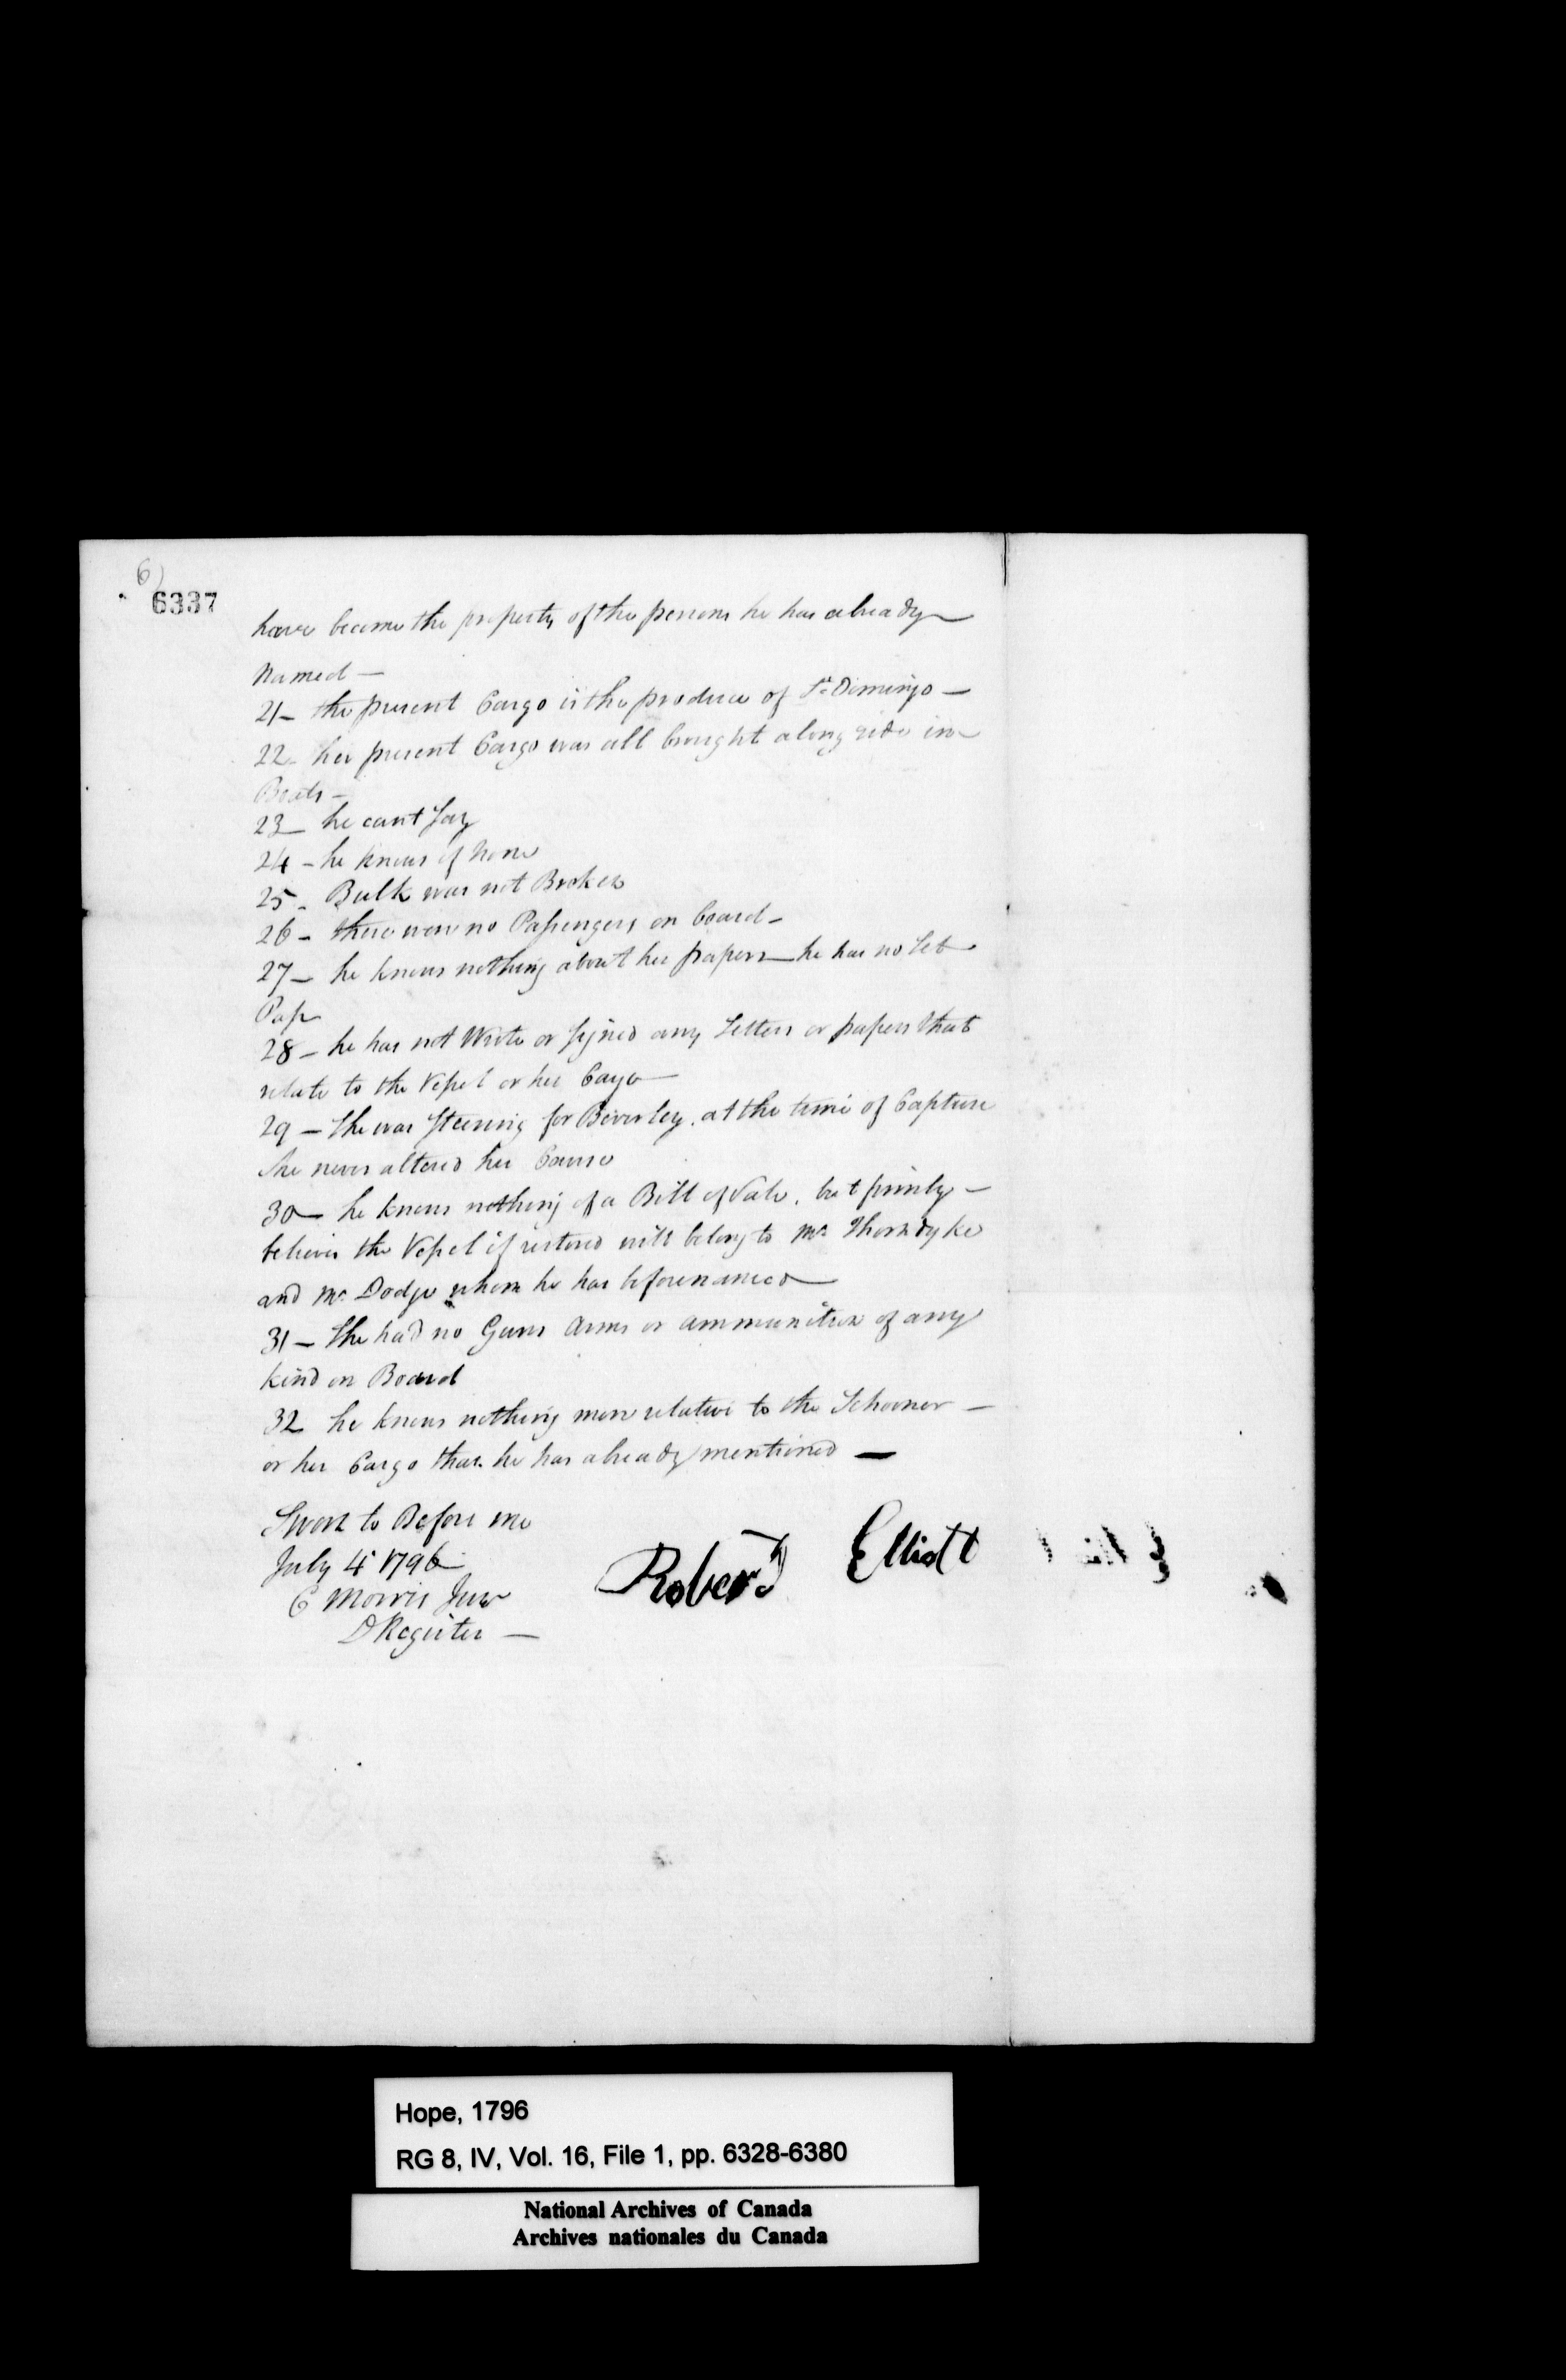 6)
6337
have become the property of the persons he has already
Named —
21 — the present Cargo is the produce of St. Domingo —
22 - her present Cargo was all brought along side in
Boats —
23 — he cant Say
24 — he knows of None
25 - Bulk was not Broken
26 - there were no Passengers on board —
27 — he knows nothing about her papers — he has no Sea
Pass
28 — he has not Wrote or Signed any Letters or papers that
relate to the Vessel or her Cargo —
29 — She was Steering for Beverley. at the time of Capture
She never altered her Course
30 — he knows nothing of a Bill of Sale, but firmly —
believes the Vessel if restored will belong to Mr Thorndyke
and Mr Dodge whom he has beforenamed —
31 — She had no Guns Arms or ammunition of any
kind on Board
32 he knows nothing more relative to the Schooner —
or her Cargo than he has already mentioned —
Sworn to Before me
July 4 1796
C Morris Junr
D Register —
Robert Elliott
Hope, 1796
RG 8, IV, Vol. 16, File 1, pp. 6328-6380
National Archives of Canada
Archives nationales du Canada